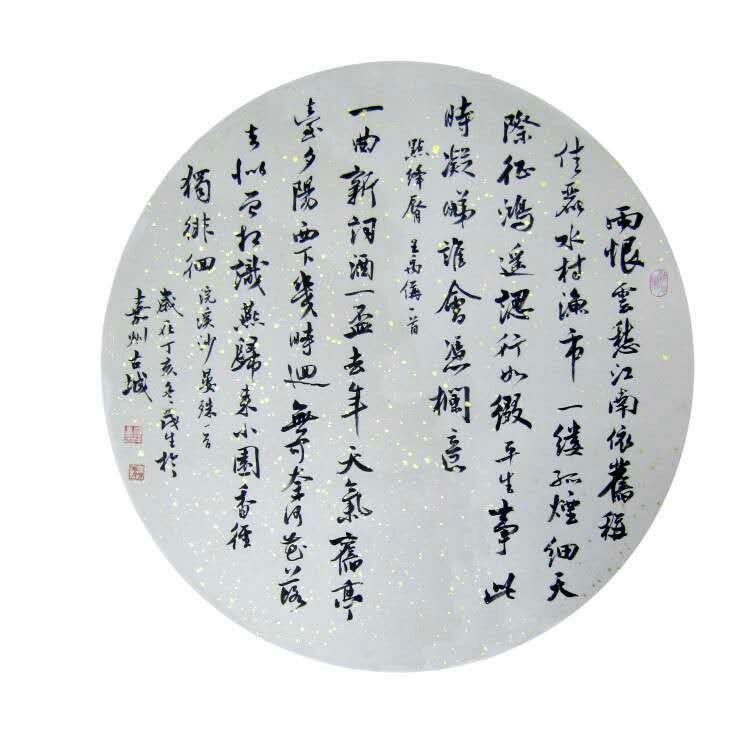 雨恨雲愁江南依舊稱
佳麗水村漁市一縷孤煙細天
際征鴻遙認行如綴平生事此
時凝睇誰會憑欄意
點絳脣 王禹偁一首
一曲新詞酒一盃去年天氣舊亭
臺夕陽西下幾時迴無可奈何花落
去似曾相識燕歸來小園香徑
獨徘徊
浣溪沙晏殊一首
歲在丁亥冬茂生於
嘉州古城